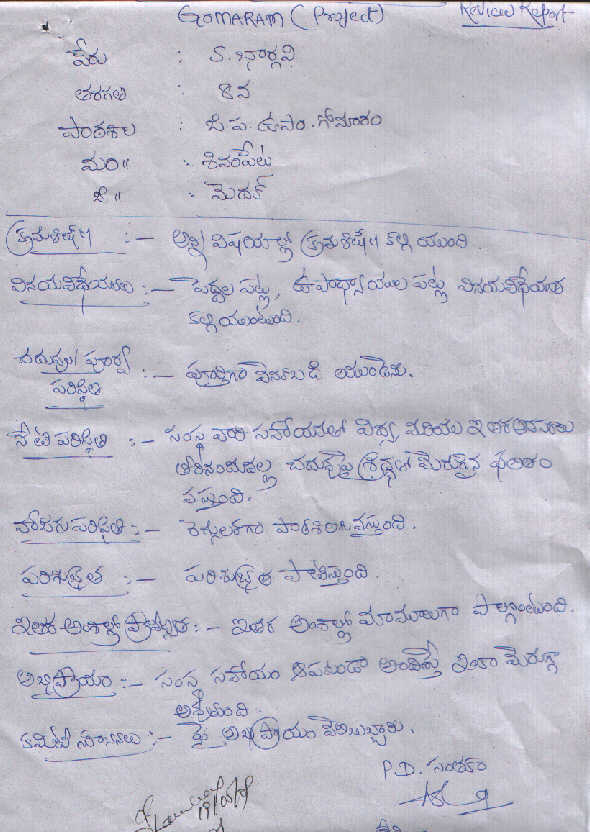 GOMARAM (Project)
Review Report
పేరు : S. భార్గవి
తరగతి : 8వ
పాఠశాల : జి.ప.ఉపా. గోమారం
మం॥ : శివంపేట
జి॥ : మెదక్
క్రమశిక్షణ :- అన్ని విషయాల్లో క్రమశిక్షణ కల్గి యుంది.
వినయవిధేయతలు :- పెద్దల పట్ల, ఉపాధ్యాయుల పట్ల వినయవిధేయత
కల్గియుంటుంది.
చదువు/పూర్వ
పరిస్థితి :- పూర్తిగా వెనుకబడి యుండెను.
నేటి పరిస్థితి :- సంస్థ వారి సహాయంతో విద్య మరియు ఇతర అవసరాలు
తీరినందువల్ల చదువుపై శ్రద్ధతో మెరుగైన ఫలితం
వస్తుంది.
హాజరు పరిస్థితి :- రెగ్యులర్‌గా పాఠశాలకు వస్తుంది.
పరిశుభ్రత :- పరిశుభ్రత పాటిస్తుంది.
ఇతర అంశాల్లో ప్రావీణ్యత :- ఇతర అంశాల్లో మామూలుగా పాల్గొంటుంది.
అభిప్రాయం :- సంస్థ సహాయం ఆపకుండా అందిస్తే ఇంకా మెరుగ్గా
అవుతుంది.
కమిటీ సూచనలు :- పై అభిప్రాయం తెలియజేశారు.
P.D. సంతకం